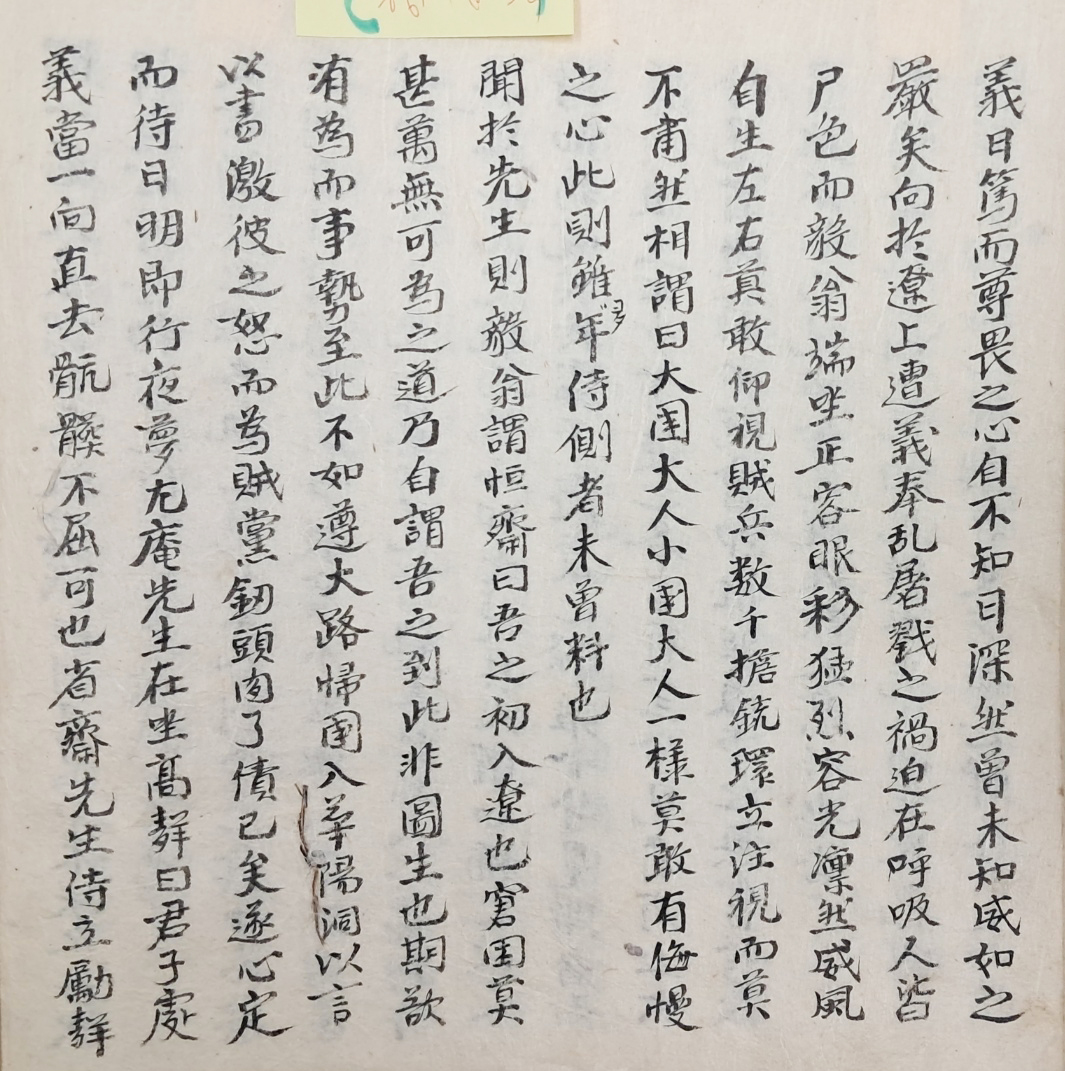 義日篤而尊畏之心自不知日深然曾未知威如之
嚴矣向於遼上遭義奉乱屠戮之禍迫在呼吸人皆
尸色而毅翁端坐正容眼彩猛烈容光凜然威風
自生左右莫敢仰視賊兵数千擔銃環立注視而莫
不肅然相謂曰大国大人小国大人一樣莫敢有侮慢
之心此則雖年多侍側者未曾料也
聞於先生則毅翁謂恒齋曰吾之初入遼也窘困莫
甚萬無可為之道乃自謂吾之到此非圖生也期欲
有為而事勢至此不如遵大路帰国入華陽洞以言
以書激彼之怒而為賊黨釰頭肉了債已矣遂心定
而待日明即行夜夢尤庵先生在坐高聲曰君子處
義當一向直去骯髒不屈可也省齋先生侍立勵聲